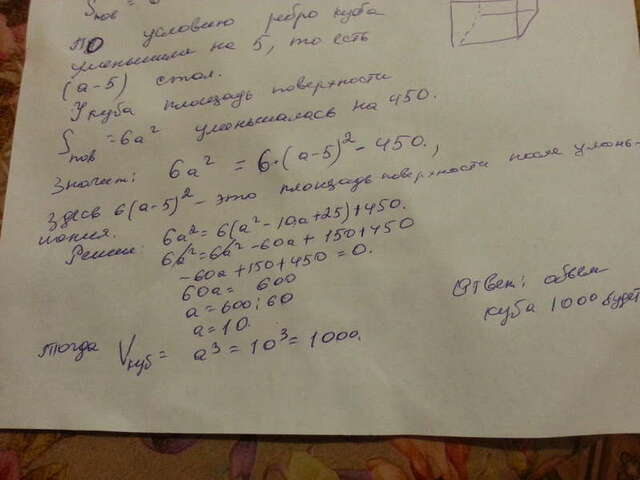 Sпов =
По условию ребро куба
уменьшили на 5, то есть
(a-5) стал.
У куба площадь поверхности
Sпов = 6a² уменьшалась на 450.
Значит: 6a² = 6·(a-5)² - 450.,
Здесь 6(a-5)² - это площадь поверхности после умень-
шения.
Решим: 6a² = 6(a² - 10a + 25) + 450.
6a² = 6a² - 60a + 150 + 450
-60a + 150 + 450 = 0.
60a = 600
a = 600 : 60
a = 10.
тогда Vкуб = a³ = 10³ = 1000.
Ответ: объем
куба 1000 будет